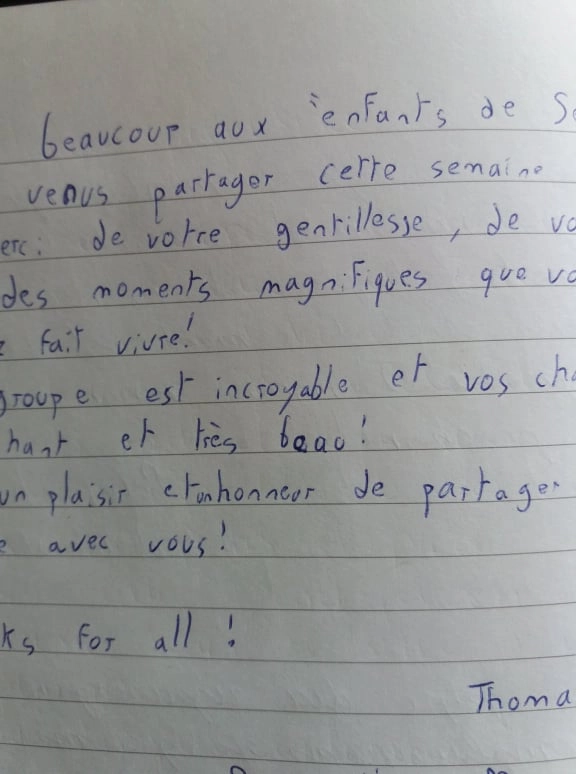 beaucoup aux enfants de
venus partager cette semaine
de votre gentillesse, de
des moments magnifiques que
fait vivre!
groupe est incroyable et vos
et très beau!
un plaisir et un honneur de partager
avec vous!
for all!